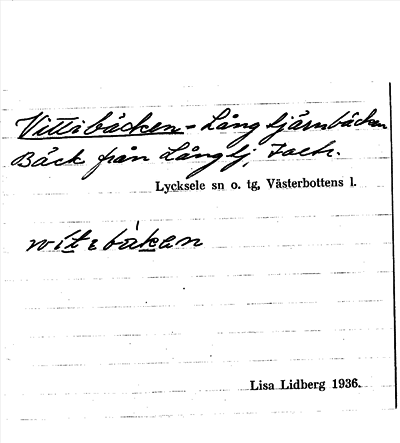 Vittibäcken = Långtjärnbäcken
Bäck från Långtj,
Lycksele sn o. tg, Västerbottens l.
witebäken
Lisa Lidberg 1936.